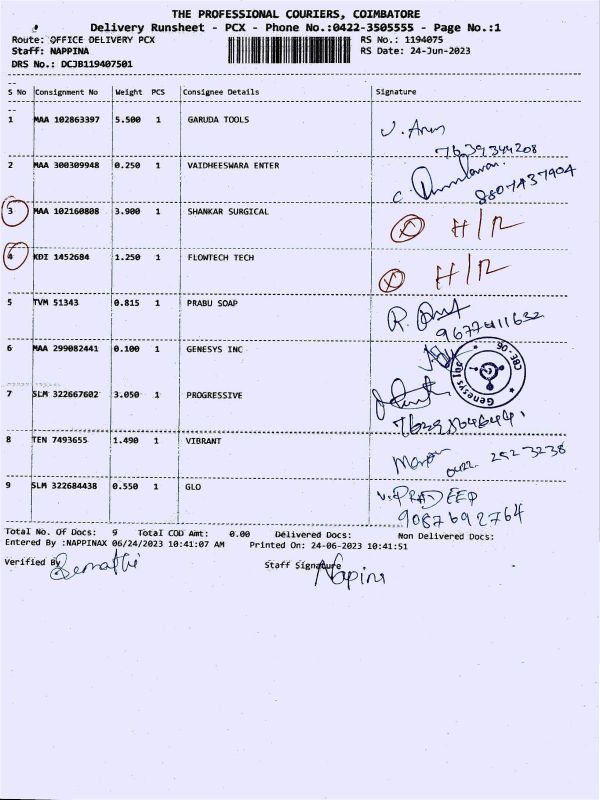 THE PROFESSIONAL COURIERS, COIMBATORE
Delivery Runsheet - PCX - Phone No.:0422-3505555 - Page No.:1
Route: OFFICE DELIVERY PCX RS No.: 1194075
Staff: NAPPINA RS Date: 24-Jun-2023
DRS No.: DCJB119407501
S No Consignment No Weight PCS Consignee Details Signature
1 MAA 102863397 5.500 1 GARUDA TOOLS
7639344208
2 MAA 300309948 0.250 1 VAIDHEESWARA ENTER
8807437904
3 MAA 102160808 3.900 1 SHANKAR SURGICAL H/R
4 KDI 1452684 1.250 1 FLOWTECH TECH H/R
5 TVM 51343 0.815 1 PRABU SOAP
9677411632
6 MAA 299082441 0.100 1 GENESYS INC Genesys CBE-06
7 SLM 322667602 3.050 1 PROGRESSIVE
8 TEN 7493655 1.490 1 VIBRANT
0422 2923238
9 SLM 322684438 0.550 1 GLO V.PRADEEP
9087692764
Total No. Of Docs: 9 Total COD Amt: 0.00 Delivered Docs: Non Delivered Docs:
Entered By :NAPPINAX 06/24/2023 10:41:07 AM Printed On: 24-06-2023 10:41:51
Verified By Staff Signature
Napina